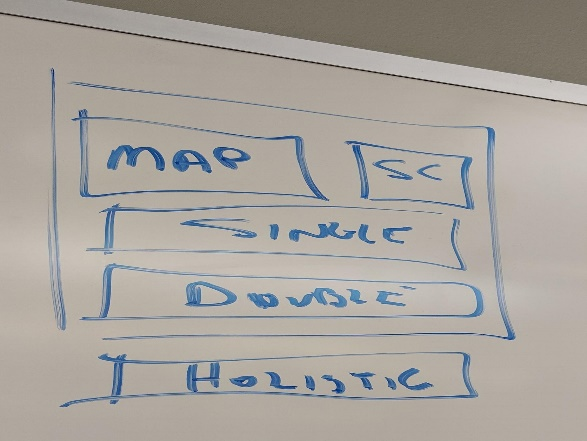 MAP SC
SINGLE
DOUBLE
HOLISTIC